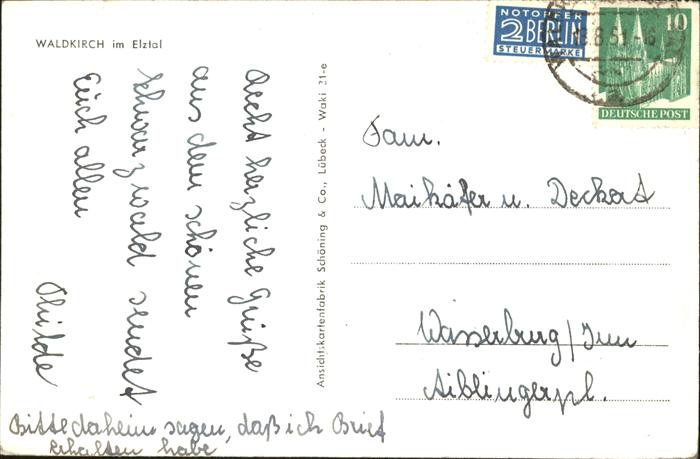 WALDKIRCH im Elztal
Recht herzliche Grüße
aus dem schönen
Schwarzwald sendet
Euch allen
Thilde
Bitte daheim sagen, daß ich Brief
erhalten habe
Ansichtskartenfabrik Schöning & Co., Lübeck - Waki 31-e
NOTOPFER
2 BERLIN
STEUERMARKE
10
DEUTSCHE POST
8.51-16
Fam.
Maikäfer u. Deckert
Wasserburg/Inn
Aiblingerpl.